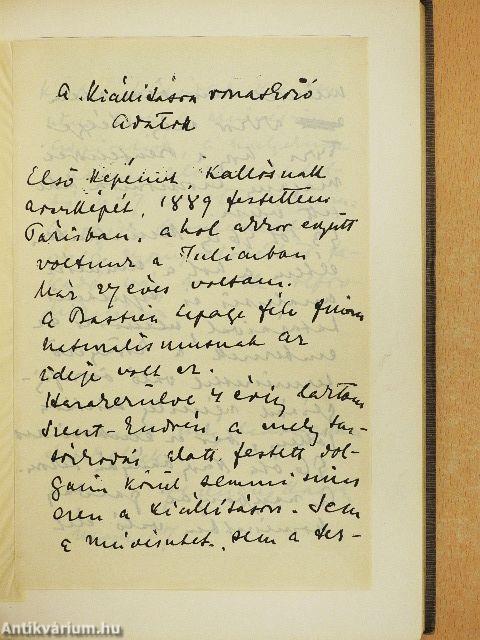 A Kiállításra vonatkozó
adatok
Első képemet, Kallósnak
arcképét, 1889 festettem
Párisban, a hol akkor együtt
voltunk a Julianban
Már 27 éves voltam.
A Bastien Lepage féle finom
naturalismusnak az
ideje volt ez.
Hazakerülve 4 évig laktam
Szent-Endrén, a mely tar-
tózkodás alatt festett dol-
gaim közül semmi sincs
ezen a kiállításon. Sem
a művészetet, sem a ter-
Antikvárium.hu